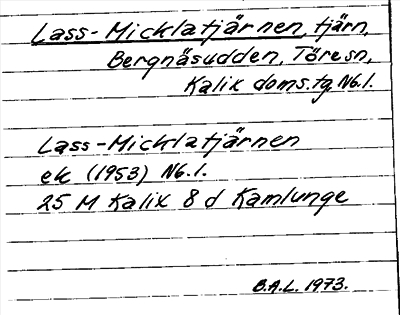 Lass-Micklatjärnen, tjärn,
Bergnäsudden, Töre sn,
Kalix doms.tg Nb.l.
Lass-Micklatjärnen
ek (1953) Nb.l.
25 M Kalix 8 d Kamlunge
B.A.L. 1973.